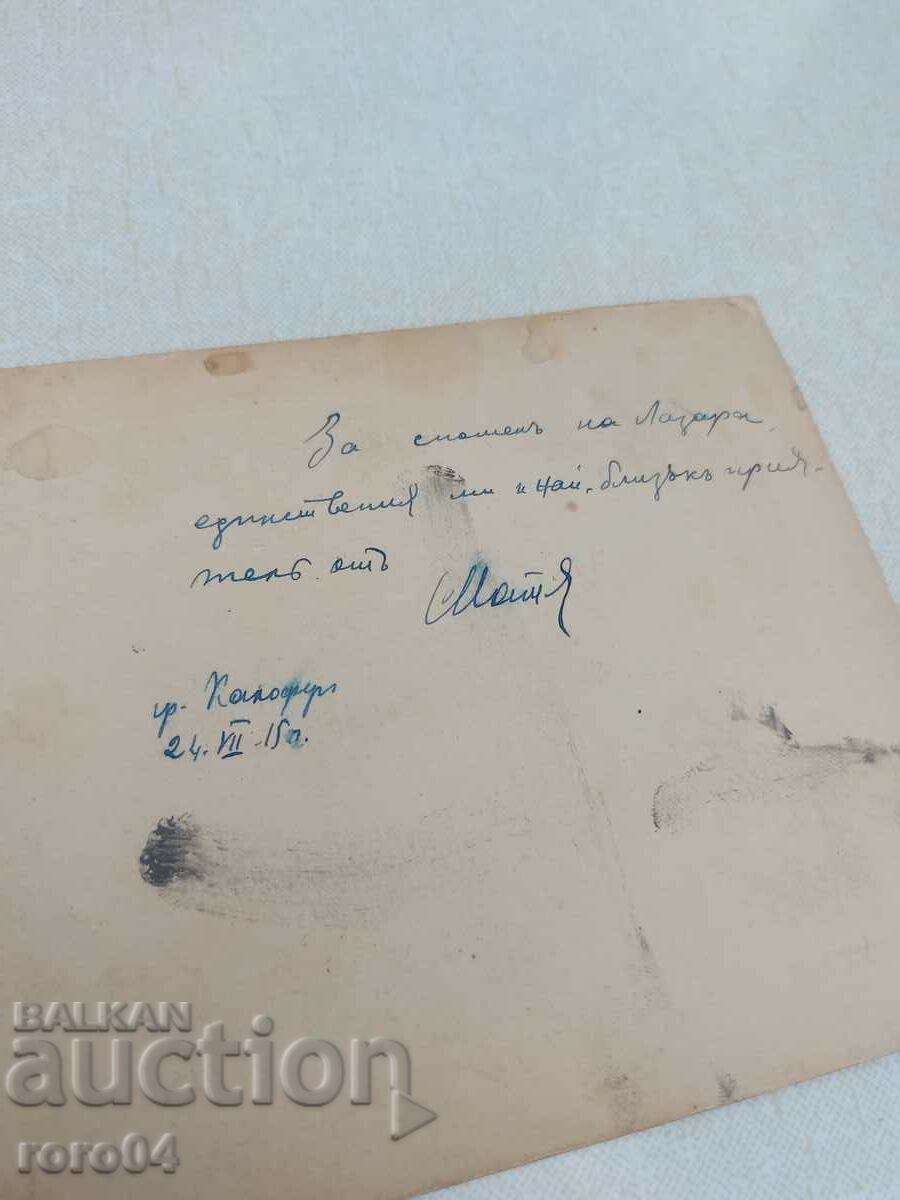 За споменъ на Лазара,
единствения ми и най-близъкъ прия-
тель отъ
Матя
гр. Калоферъ
24.VII.15г.
BALKAN
auction
roro04